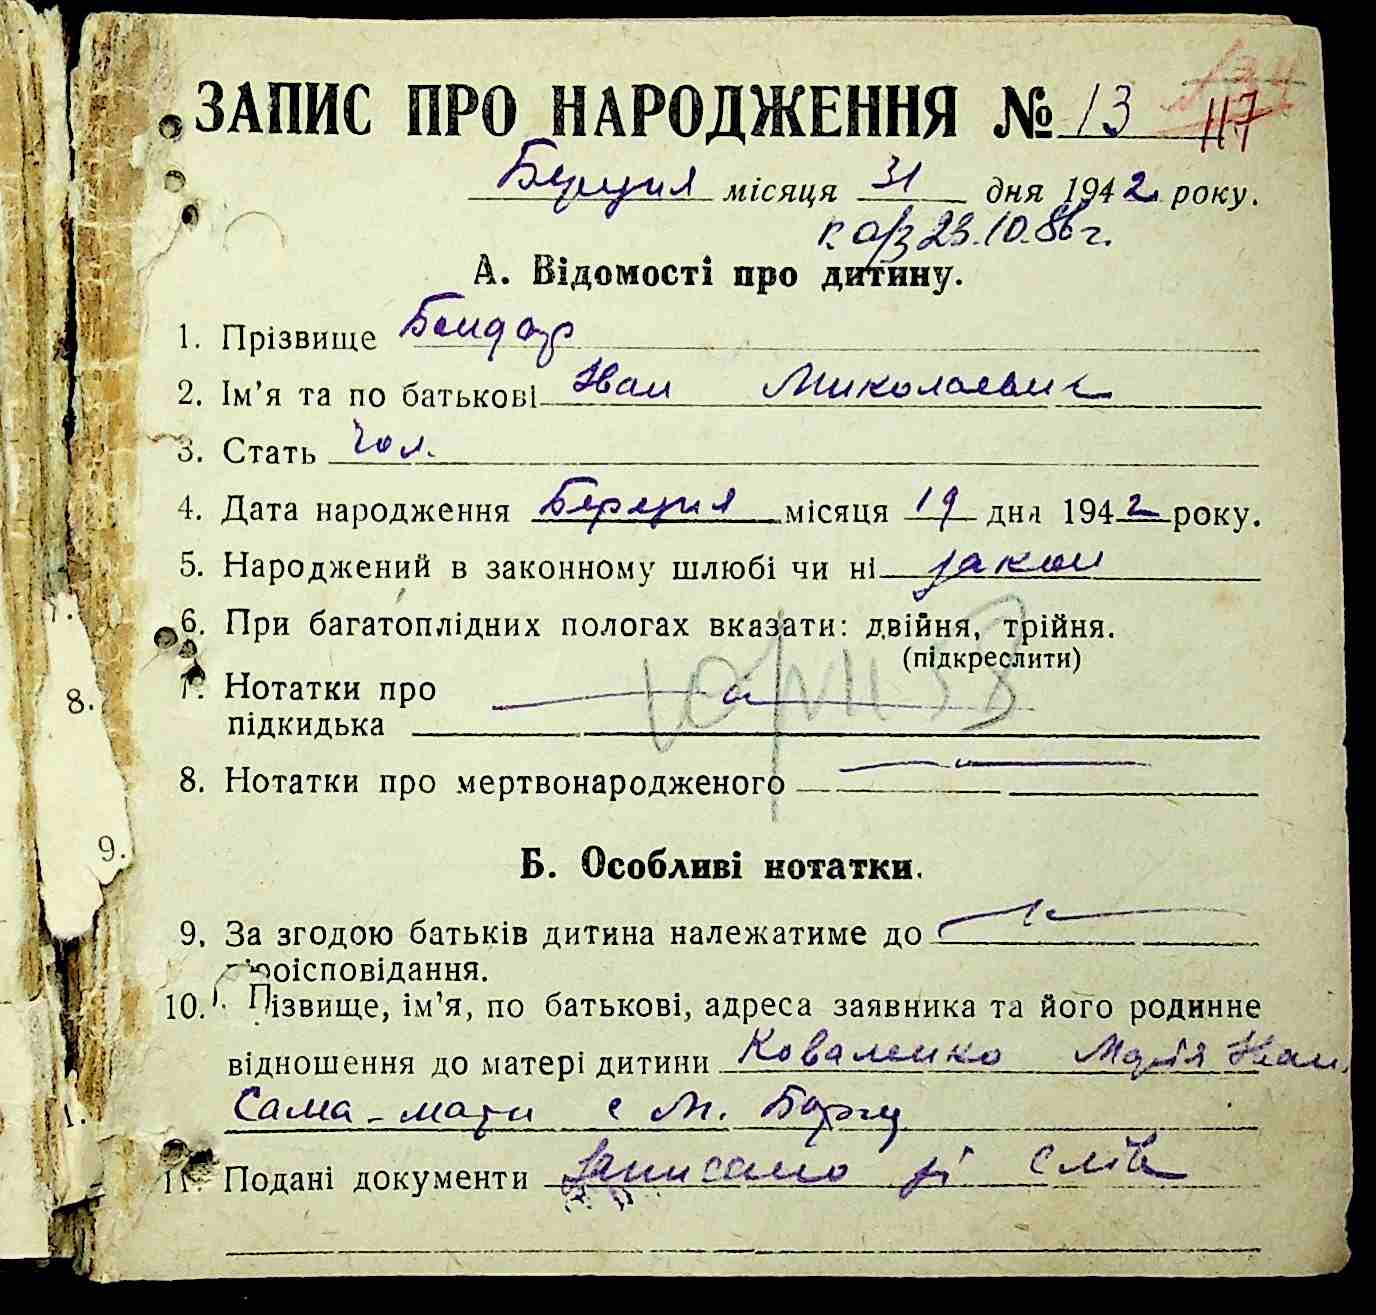 ЗАПИС ПРО НАРОДЖЕННЯ № 13 117
Березня місяця 31 дня 1942 року.
23.10.86 г.
А. Відомості про дитину.
1. Прізвище Бондар
2. Ім'я та по батькові Иван Миколаевич
3. Стать Чол.
4. Дата народження Березня місяця 19 дня 1942 року.
5. Народжений в законному шлюбі чи ні закон
6. При багатоплідних пологах вказати: двійня, трійня.
(підкреслити)
7. Нотатки про
підкидька
8. Нотатки про мертвонародженого
8.
9.
Б. Особливі нотатки.
9. За згодою батьків дитина належатиме до
віроісповідання.
10. Прізвище, ім'я, по батькові, адреса заявника та його родинне
відношення до матері дитини Коваленко Марія Иван.
Сама - мати с М.
11. Подані документи Записано зі слів